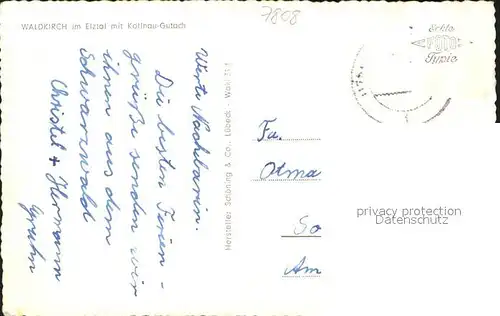 WALDKIRCH im Elztal mit Kollnau-Gutach
7808
Echte
FOTO
Typie
Werte Nachbarin.
Die besten Ferien-
grüße senden wir
ihnen aus dem
Schwarzwald
Christel + Hermann
Hersteller Schöning & Co., Lübeck
Fa.
Otma
So
Am
privacy protection
Datenschutz